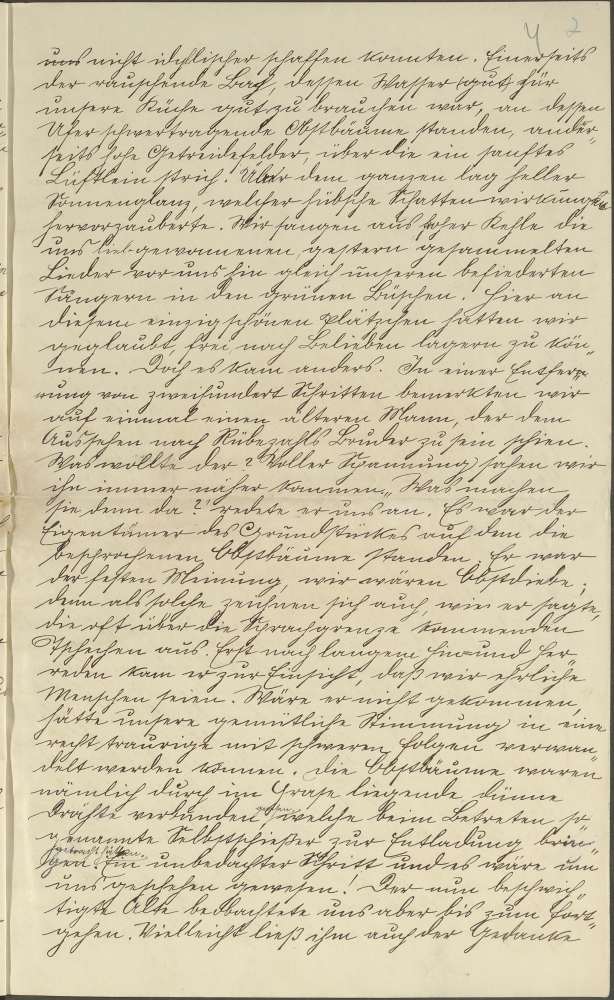 4 2
uns nicht idyllischer schaffen konnten. Einerseits
der rauschende Bach, dessen Wasser (gut) für
unsere Küche gut zu brauchen war, an dessen
Ufer schwertragende Obstbäume standen, ander-
seits hohe Getreidefelder, über die ein sanftes
Lüftlein strich. Über dem ganzen lag heller
Sonnenglanz, welcher hübsche Schattenwirkungen
hervorzauberte. Wir sangen aus froher Kehle die
uns liebgewonnenen, gestern gesammelten
Lieder vor uns hin gleich unseren befiederten
Sängern in den grünen Büschen. Hier an
diesem einzig schönen Plätzchen hatten wir
geglaubt, frei nach Belieben lagern zu kön-
nen. Doch es kam anders. In einer Entfer-
nung von zweihundert Schritten bemerkten wir
auf einmal einen älteren Mann, der dem
Aussehen nach Rübezahls Bruder zu sein schien.
Was wollte der? Voller Spannung sahen wir
ihn immer näher kommen. „Was machen
sie denn da?" redete er uns an. Es war der
Eigentümer des Grundstückes auf dem die
besprochenen Obstbäume standen. Er war
der festen Meinung, wir wären Obstdiebe;
denn als solche zeichnen sich auch, wie er sagte,
die oft über die Sprachgrenze kommenden
Tschechen aus. Erst nach langem Hin= und Her-
reden kam er zur Einsicht, daß wir ehrliche
Menschen seien. Wäre er nicht gekommen,
hätte unsere gemütliche Stimmung in eine
recht traurige mit schweren Folgen verwan-
delt werden können. Die Obstbäume waren
nämlich durch im Grase liegende dünne
Drähte verbunden gewesen, welche beim Betreten so
genannte Selbstschießer zur Entladung brin-
gen. gebracht hätten. Ein unbedachter Schritt und es wäre um
uns geschehen gewesen! Der nun beschwich-
tigte Alte beobachtete uns aber bis zum Fort-
gehen. Vielleicht ließ ihm auch der Gedanke